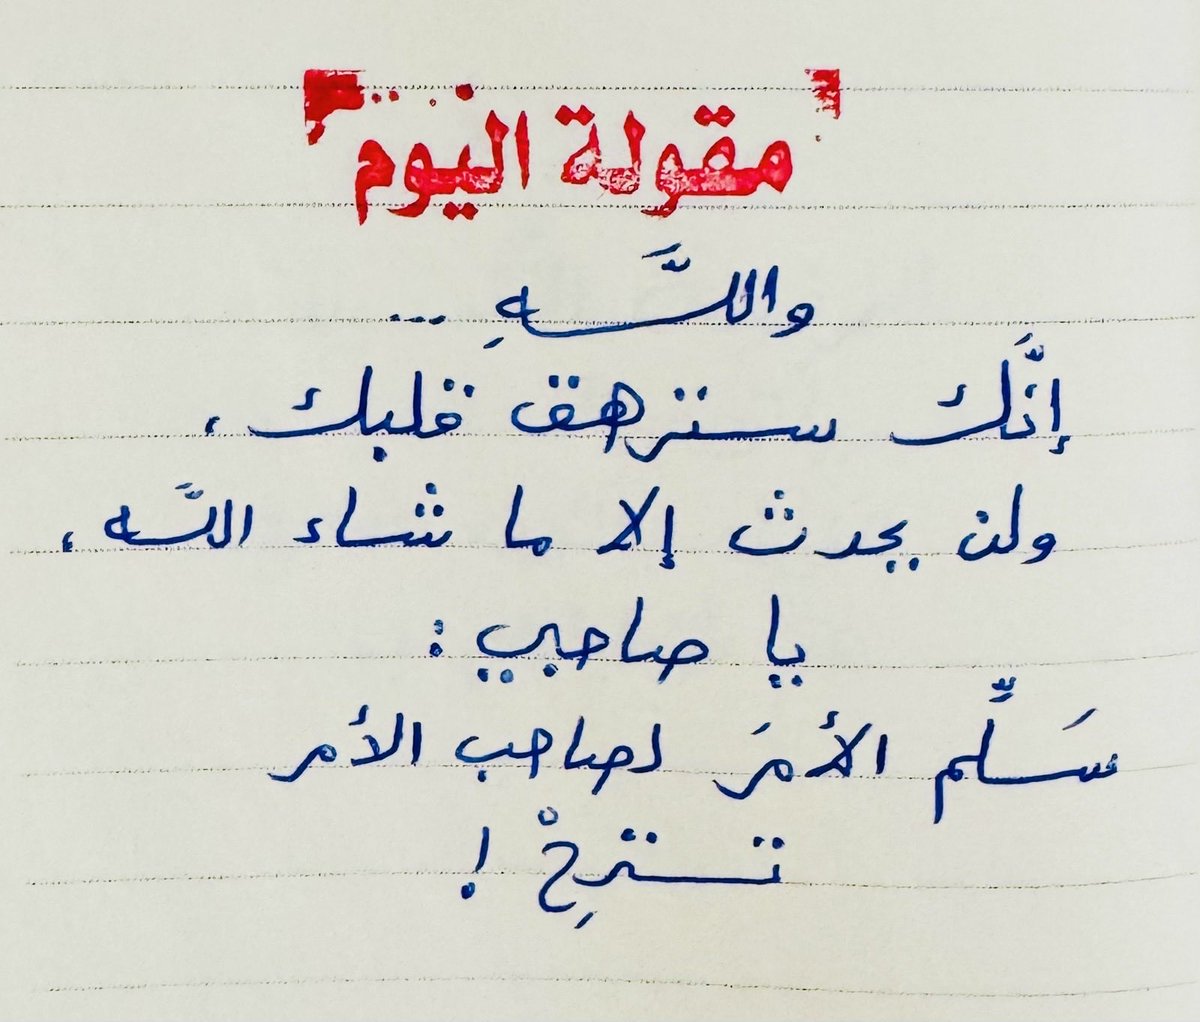 مقولة اليوم
واللَّهِ ...
إنَّك ستزهق قلبك،
ولن يحدث إلا ما شاء اللَّه،
يا صاحبي :
سَلِّم الأمرَ لصاحب الأمر
تسترِحْ !